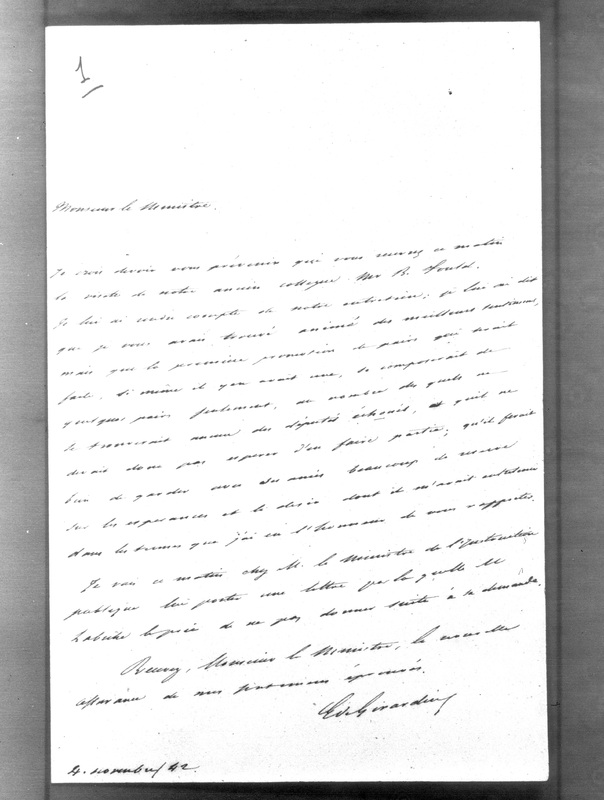 1
Monsieur le Ministre.
Je crois devoir vous prévenir que vous recevrez ce matin
la visite de notre ancien collègue Mr B. Fould.
Je lui ai rendu compte de notre entretien; je lui ai dit
que je vous avais trouvé animé des meilleurs sentiments,
mais que la première promotion de pairs qui serait
faite, si même il y en avait une, se composerait de
quelques pairs seulement, au nombre des quels ne
se trouverait aucun des députés échoués, et qu'il ne
devait donc pas espérer d'en faire partie; qu'il ferait
bien de garder avec ses amis beaucoup de réserve
sur les espérances et le désir dont il m'avait entretenu
dans les termes que j'ai eu l'honneur de vous rapporter.
Je vais ce matin chez M. le Ministre de l'Instruction
publique lui porter une lettre par la quelle M
le prie de ne pas donner suite à sa demande.
Recevez, Monsieur le Ministre, la nouvelle
assurance de mes sentimens éprouvés.
E de Girardin
4. novembre 42.